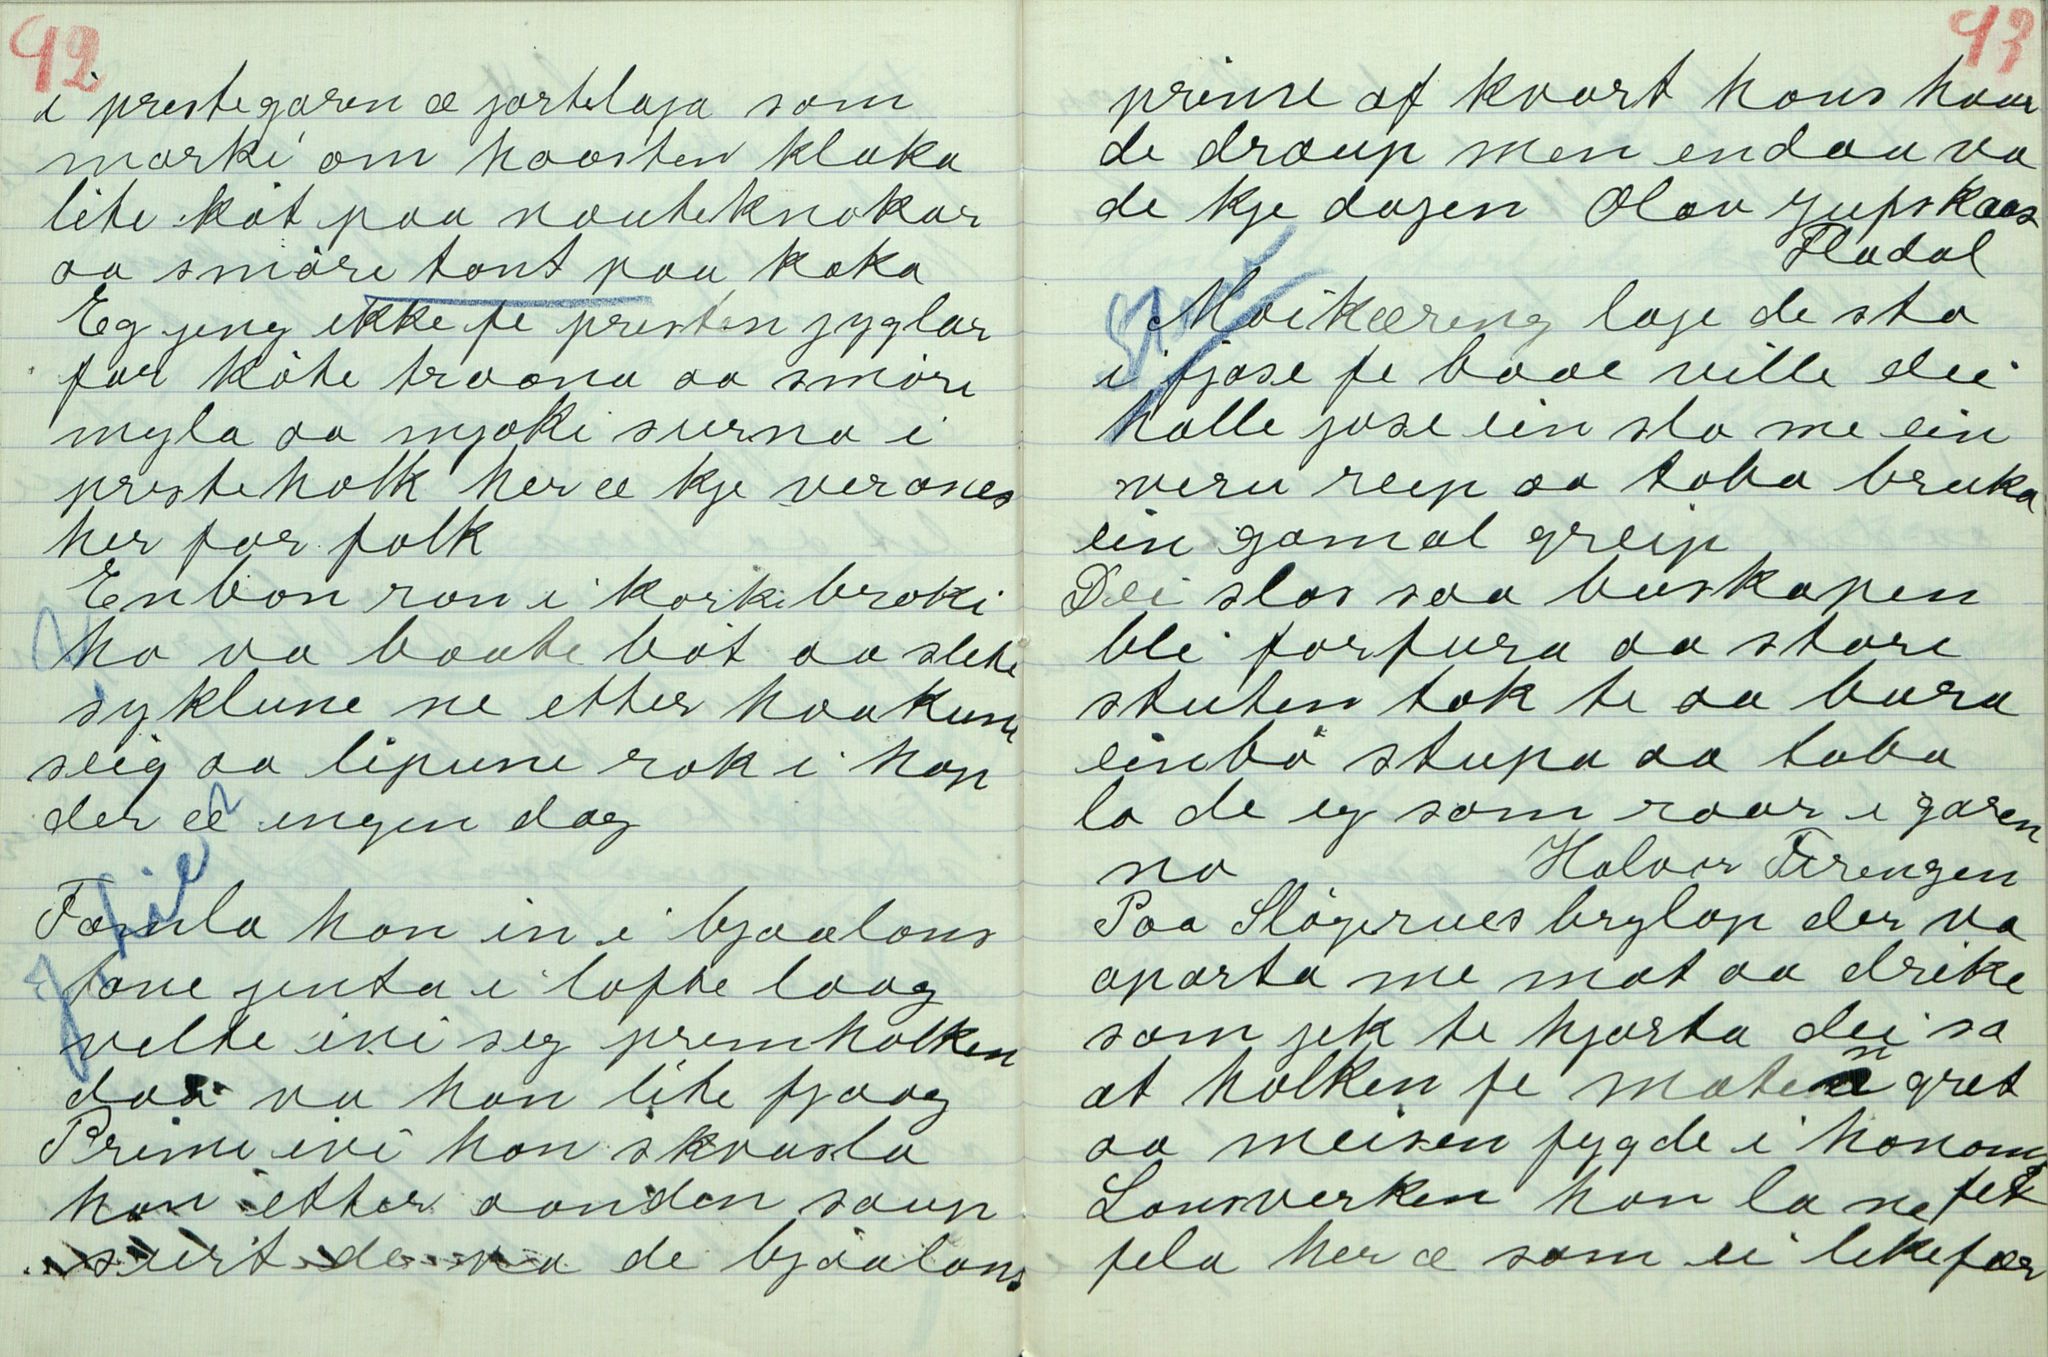 92
i prestegaren æ jortelaga som
marki om haasten klaka
lite køt paa nauteknokar
aa smøre tont paa kaka
Eg jeng ikke fe presten jyglar
far køte traana aa smøre
mygla aa mjøki surna i
presteholk her æ kje veranes
her for folk
En bon ran i korkebroki
ho va baate bøt aa slete
syklune ne etter haakune
seig aa lipune rak i hop
der æ ingen dag
Famla han in i bjaalans
tone jenta i lofte laag
velte ivi seg premholken
daa va han lite fjaag
Prim ivi han skvasla
han etter aanden saup
surt de va de bjaalans
93
prime af kvart hans haar
de draup men endaa va
de kje dagen Olav Jupskaas
Fladal
Moikæring laje de sta
i fjøse fe baae ville dei
halle jøse ein sto me ein
veru reip aa taba bruka
ein gamal greip
Dei slos saa buskapen
blei forfura aa store
stuten tok te aa bura
einbø stupa aa taba
la de eg som raar i garen
no Halvor Trengen
Paa Sløgerues brylop der va
aparta me mat aa drikke
som jek te hjarta dei sa
at holken fe maten gret
aa meisen fygde i honom
Lousverken han la ne fet
fela her æ som ei likefær